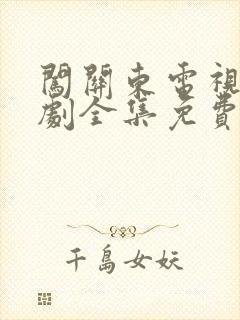 闖關東電視
劇全集免費
千島女妖